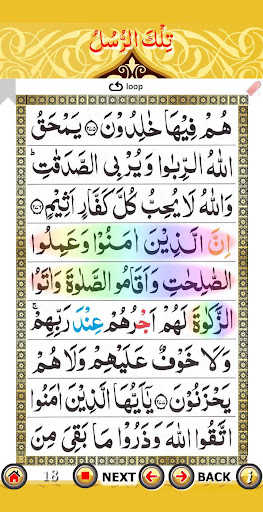 تِلْكَ الرُّسُلُ
loop
هُمْ فِيْهَا خٰلِدُوْنَ ﴿۲۷۵﴾ يَمْحَقُ
اللّٰهُ الرِّبٰوا وَيُرْبِى الصَّدَقٰتِ ؕ
وَاللّٰهُ لَا يُحِبُّ كُلَّ كَفَّارٍ اَثِيْمٍ ﴿۲۷۶﴾
اِنَّ الَّذِيْنَ اٰمَنُوْا وَعَمِلُوا
الصّٰلِحٰتِ وَاَقَامُوا الصَّلٰوةَ وَاٰتَوُا
الزَّكٰوةَ لَهُمْ اَجْرُهُمْ عِنْدَ رَبِّهِمْ ۚ
وَلَا خَوْفٌ عَلَيْهِمْ وَلَا هُمْ
يَحْزَنُوْنَ ﴿۲۷۷﴾ يٰۤاَيُّهَا الَّذِيْنَ اٰمَنُوا
اتَّقُوا اللّٰهَ وَذَرُوْا مَا بَقِىَ مِنَ
18 NEXT BACK i